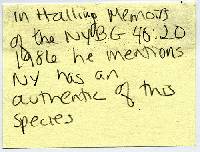 In Halling Memoirs
of the NYBG 48:20
1986 he mentions
NY has an
authentic of this
species